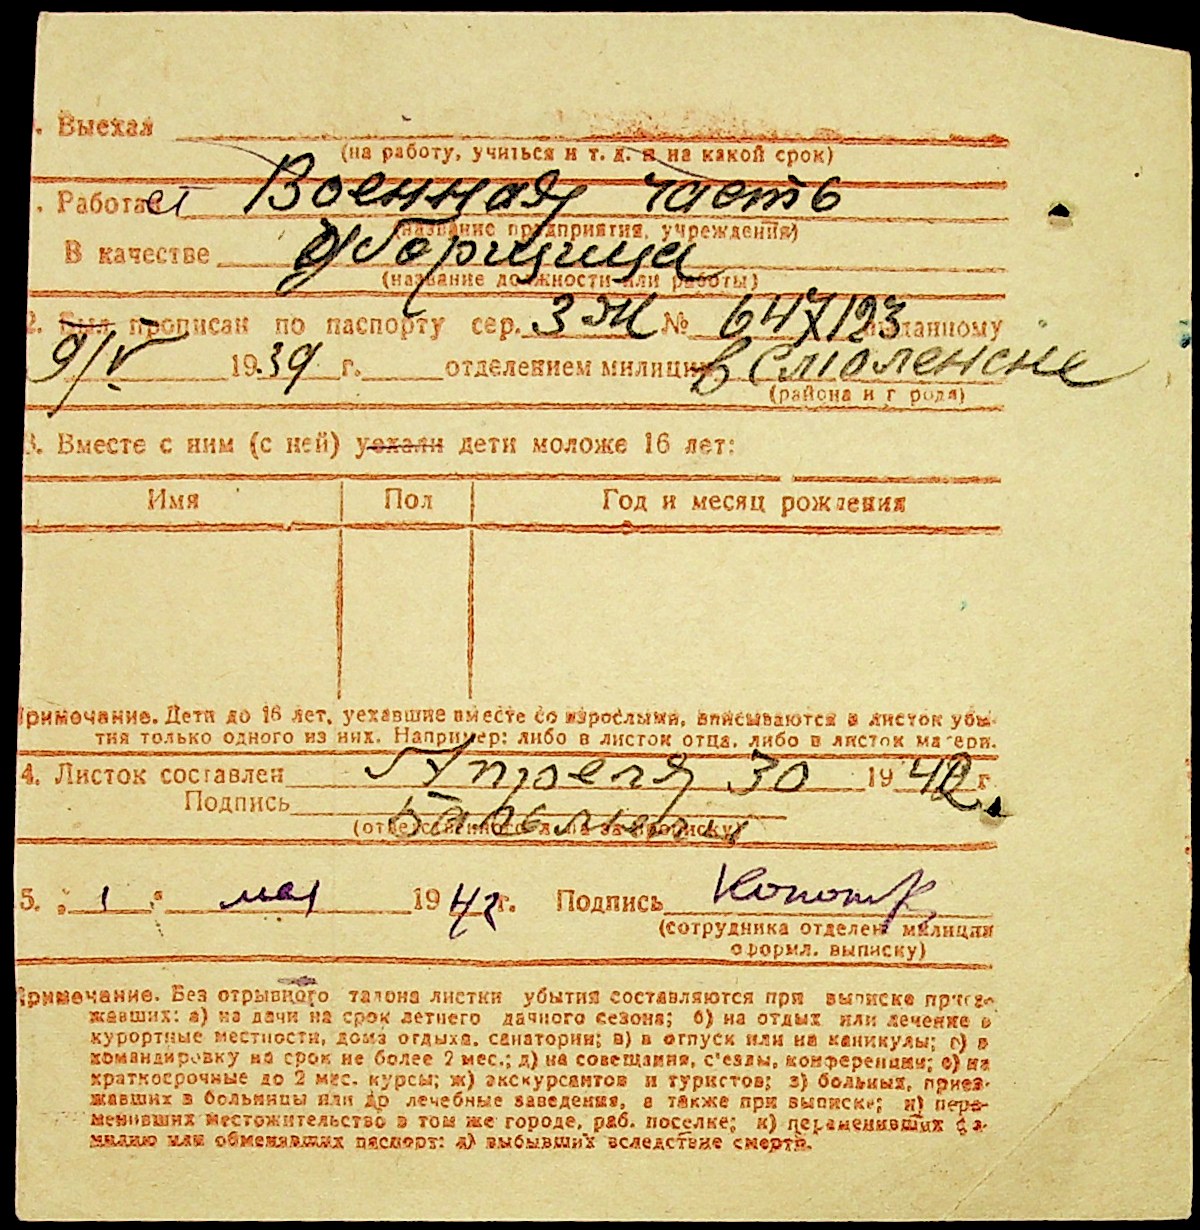 . Выехал
(на работу, учиться и т. д. и на какой срок)
. Работает Военная часть
(название предприятия, учреждения)
В качестве уборщица
(название должности или работы)
2. Был прописан по паспорту сер. ЗЖ № 647123 выданному
9/V 1939 г. отделением милиции в Смоленске
(района и города)
3. Вместе с ним (с ней) уехали дети моложе 16 лет:
Имя Пол Год и месяц рождения
Примечание. Дети до 16 лет, уехавшие вместе со взрослыми, вписываются в листок убы-
тия только одного из них. Например: либо в листок отца, либо в листок матери.
4. Листок составлен Апреля 30 1942 г.
Подпись
(ответственного лица за прописку)
5. „1“ мая 1942 г. Подпись
(сотрудника отделен. милиции
оформл. выписку)
Примечание. Без отрывного талона листки убытия составляются при выписке приез-
жавших: а) на дачи на срок летнего дачного сезона; б) на отдых или лечение в
курортные местности, дома отдыха, санатории; в) в отпуск или на каникулы; г) в
командировку на срок не более 2 мес.; д) на совещания, с'езды, конференции; е) на
краткосрочные до 2 мес. курсы; ж) экскурсантов и туристов; з) больных, приез-
жавших в больницы или др лечебные заведения, а также при выписке; и) пере-
менивших местожительство в том же городе, раб. поселке; к) переменивших фа-
милию или обменявших паспорт; л) выбывших вследствие смерти.